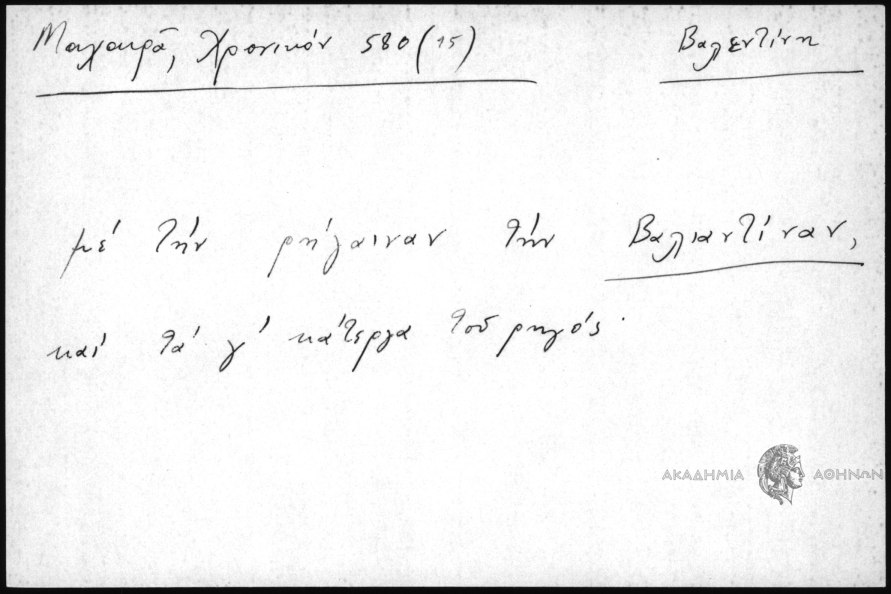 Μαχαιρᾶ, Χρονικόν 580 (15) Βαλεντίνη
μέ τήν ρήγαιναν τήν Βαλιαντίναν,
καί τά γ' κάτεργα τοῦ ρηγός.
ΑΚΑΔΗΜΙΑ ΑΘΗΝΩΝ